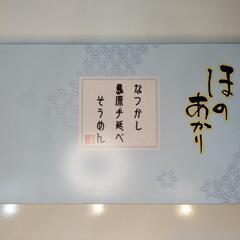 ほの
あかり
なつかし
島原手延べ
そうめん